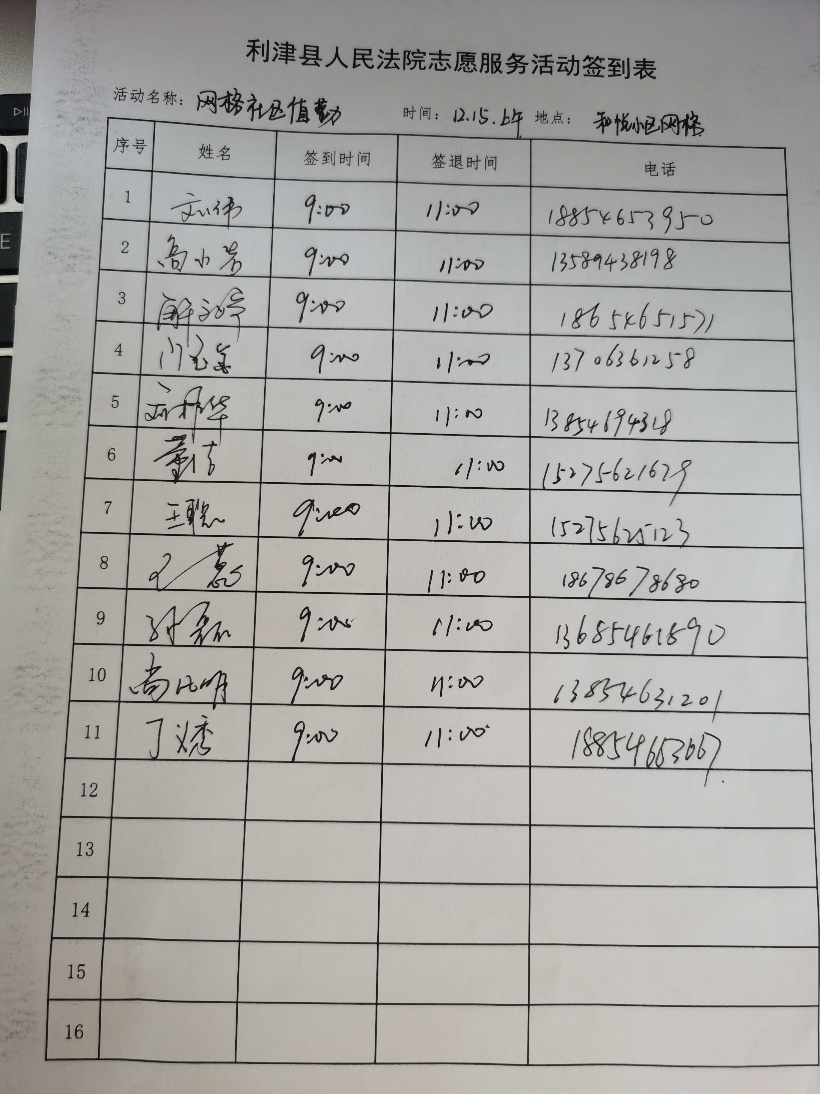 利津县人民法院志愿服务活动签到表
活动名称: 网格社区值勤 时间: 12.15.上午 地点: 和悦小区网格
序号 姓名 签到时间 签退时间 电话
1 刘伟 9:00 11:00 18854653950
2 高小岩 9:00 11:00 13589438198
3 9:00 11:00 18654651571
4 9:00 11:00 13706361258
5 9:00 11:00 13854694318
6 董洁 9:00 11:00 15275621679
7 王聪 9:00 11:00 15275625123
8 9:00 11:00 18678678680
9 孙磊 9:00 11:00 13685461890
10 尚民明 9:00 11:00 13854631201
11 丁义秀 9:00 11:00 18854663667
12
13
14
15
16